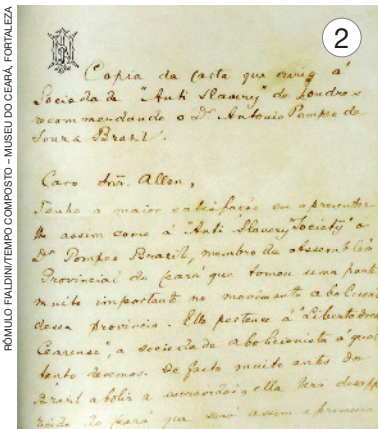 RÔMULO FIALDINI/TEMPO COMPOSTO – MUSEU DO CEARÁ, FORTALEZA
2
Copia da carta que
Sociedade "Anti Slavery" de Londres
recommendando o Dr Antonio Pompeo de
Souza Brazil.
Caro Snr. Allen,
Tenho a maior satisfação em apresentar
lhe assim como á "Anti Slavery Society" o
Dr Pompeo Brazil, membro da assembléa
Provincial do Ceará que tomou uma parte
muito importante no movimento abolicioni
dessa provincia. Elle pertence á "Libertadora
Cearense", a sociedade abolicionista á qual
tanto devemos. De facto muito antes do
Brazil abolir a escravidão, ella terá desapp
do Ceará que será assim a primeira